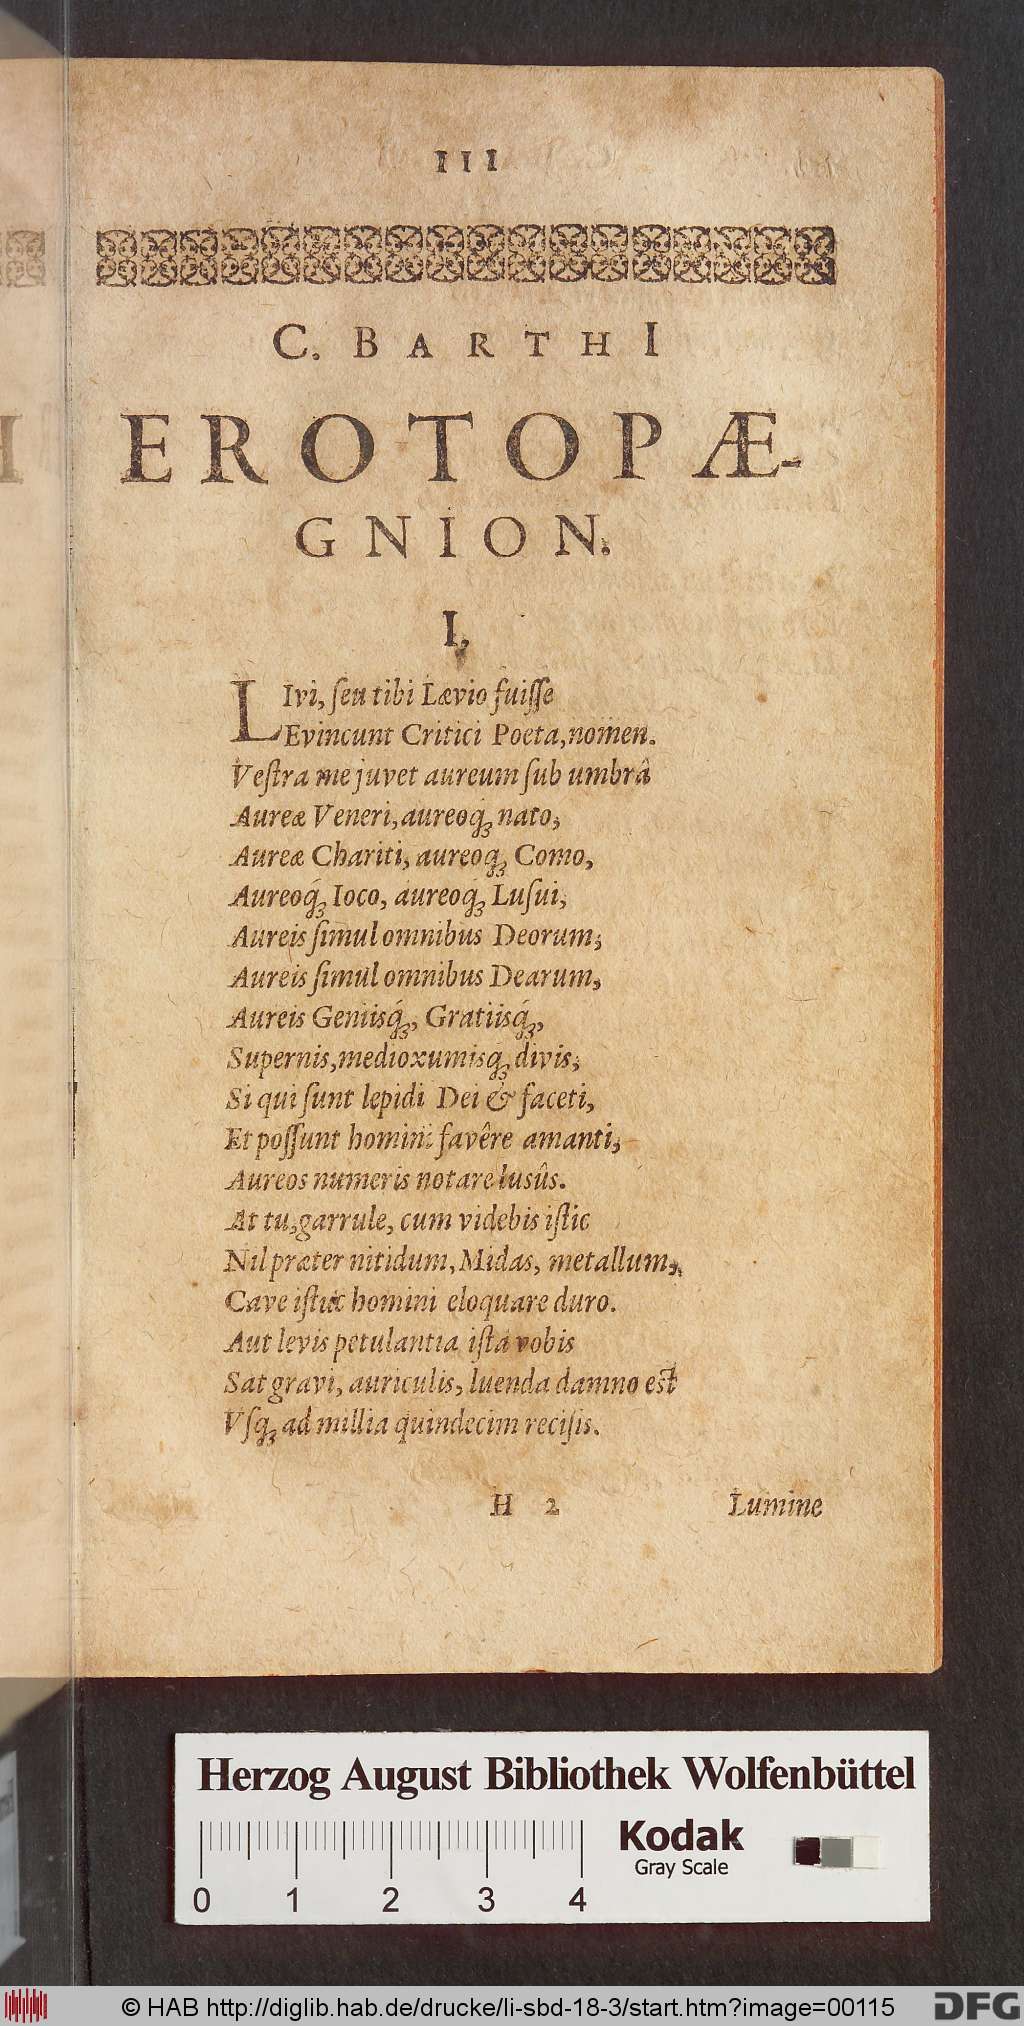 III
C. BARTHI
EROTOPÆ-
GNION.
I,
LIvi, ſeu tibi Lævio fuiſſe
Evincunt Critici Poeta, nomen.
Veſtra me juvet aureum ſub umbrâ
Aureæ Veneri, aureoq́ꝫ nato,
Aureæ Chariti, aureoq́ꝫ Como,
Aureoq́ꝫ Ioco, aureoq́ꝫ Luſui,
Aureis ſimul omnibus Deorum,
Aureis ſimul omnibus Dearum,
Aureis Geniisq́ꝫ, Gratiisq́ꝫ,
Supernis, medioxumisq́ꝫ divis,
Si qui ſunt lepidi Dei & faceti,
Et poſſunt homini favêre amanti,
Aureos numeris notare luſûs.
At tu, garrule, cum videbis iſtic
Nil præter nitidum, Midas, metallum,
Cave iſtuc homini eloquare duro.
Aut levis petulantia iſta vobis
Sat gravi, auriculis, luenda damno eſt
Vſqꝫ ad millia quindecim reciſis.
H 2 Lumine
Herzog August Bibliothek Wolfenbüttel
Kodak
Gray Scale
0 1 2 3 4
© HAB http://diglib.hab.de/drucke/li-sbd-18-3/start.htm?image=00115
DFG